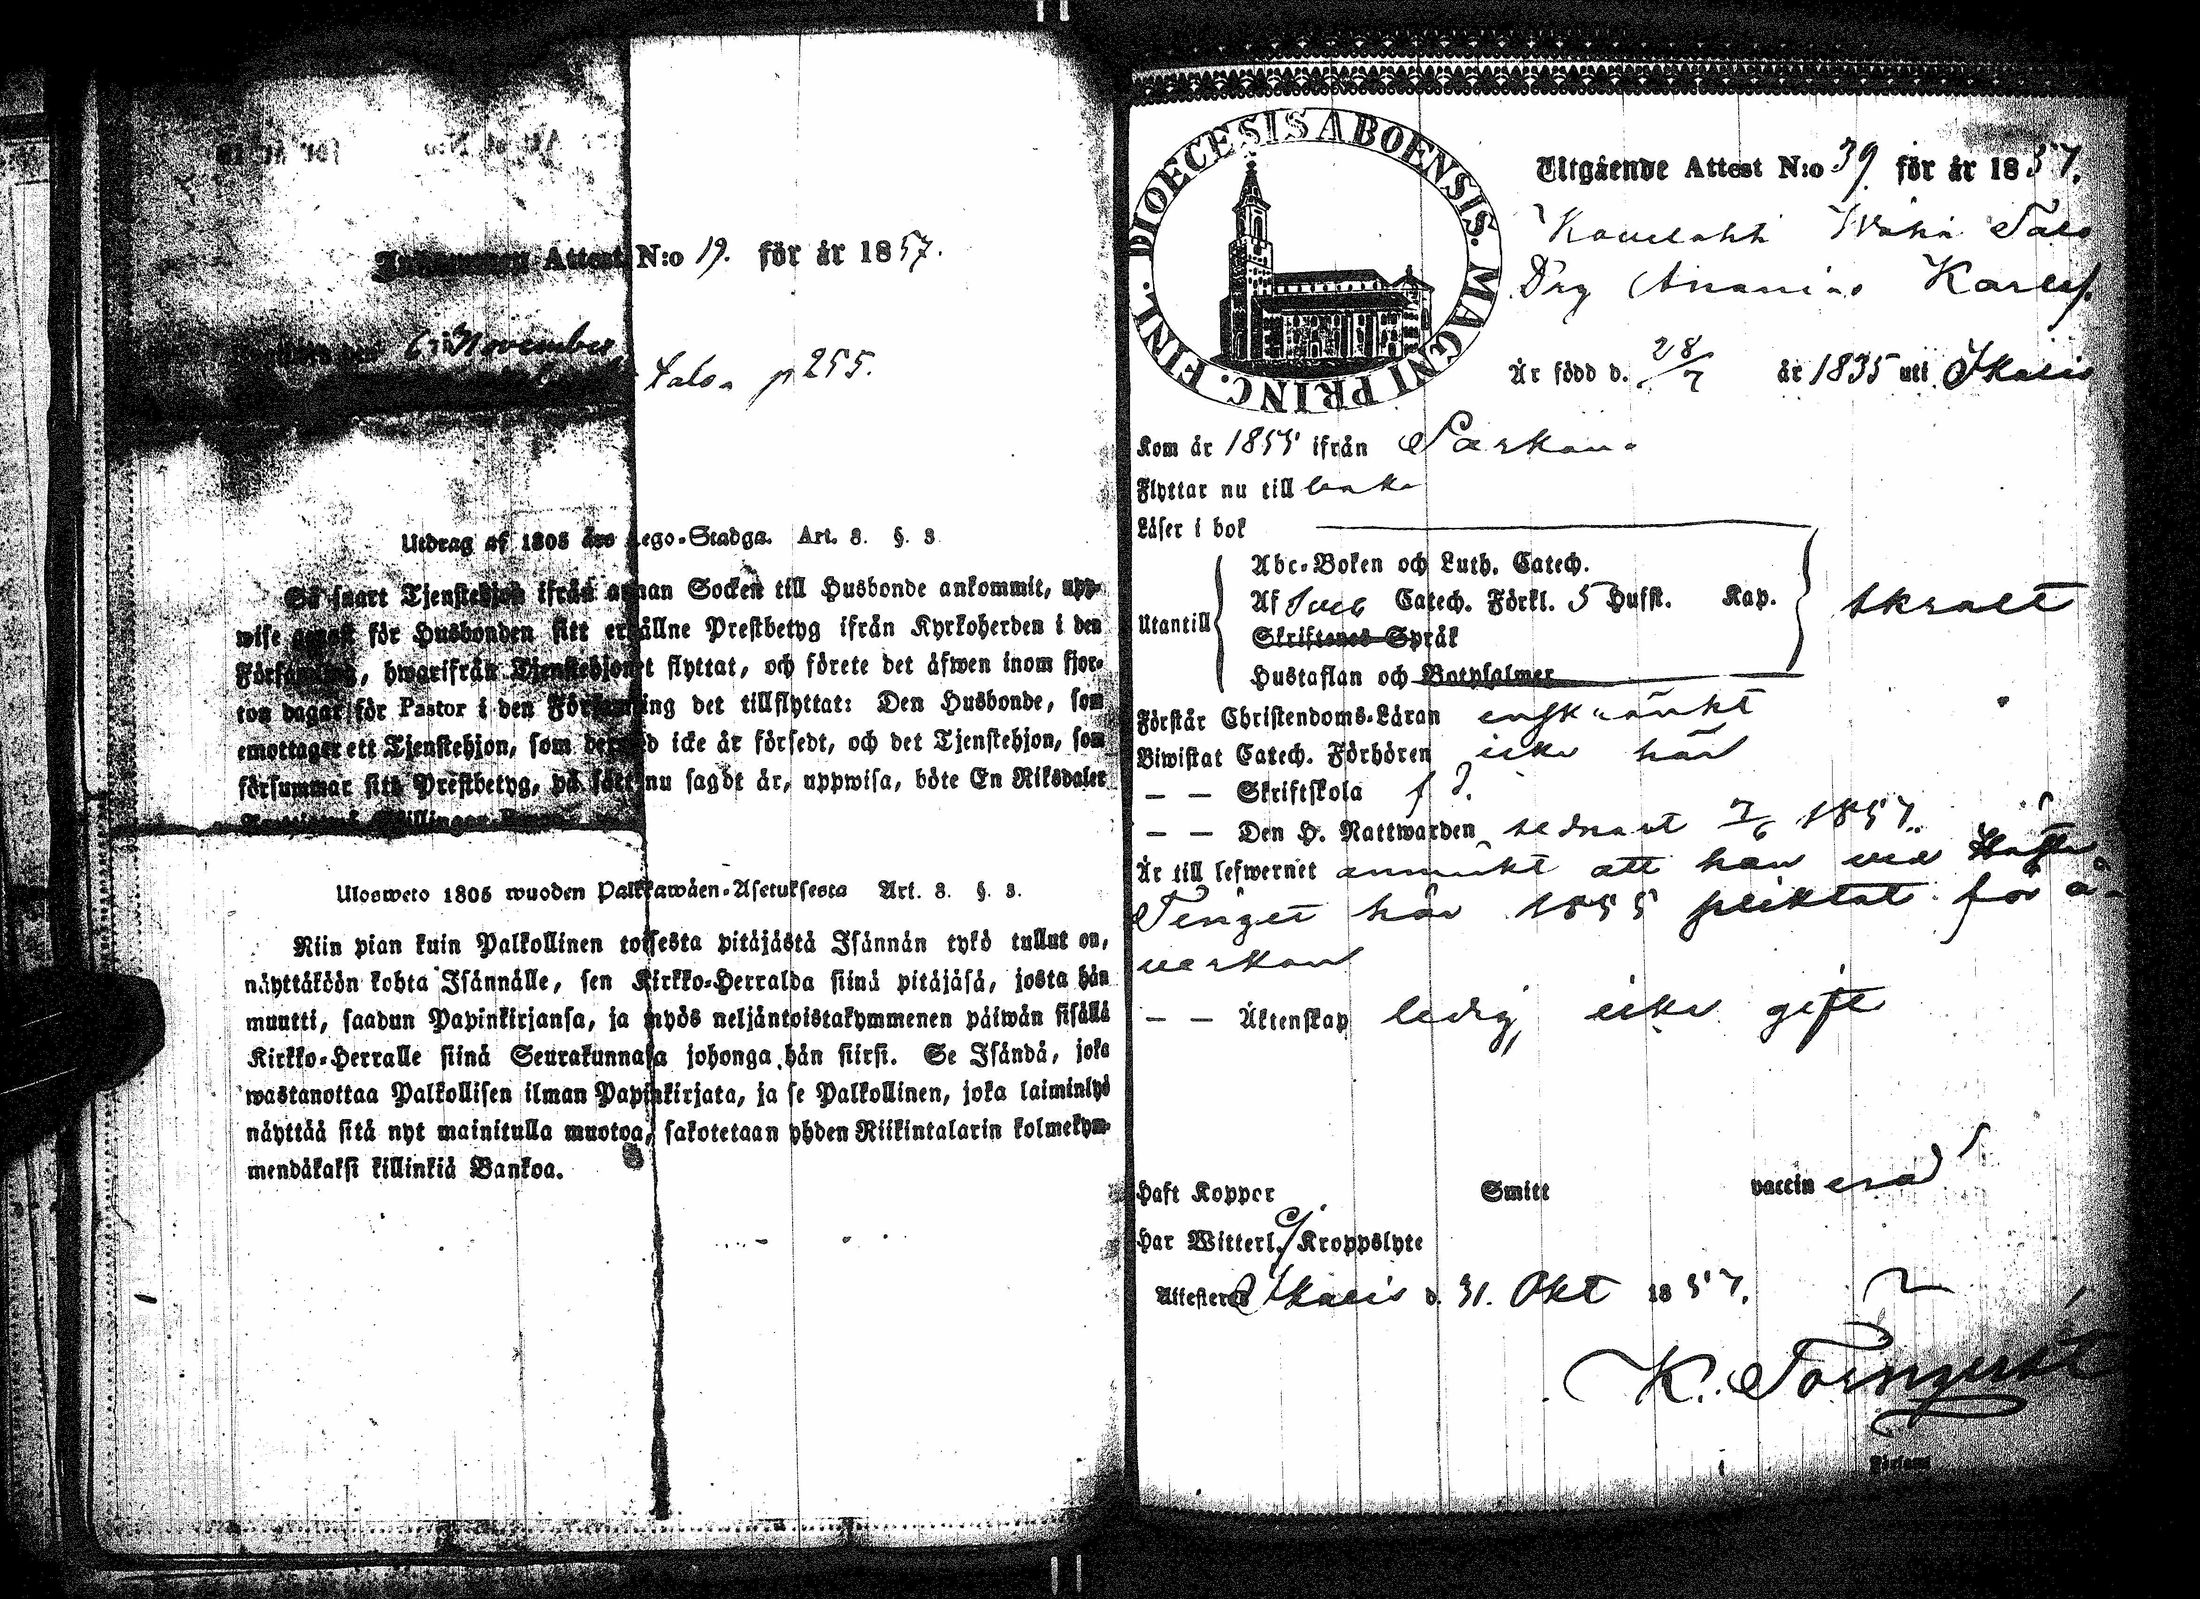 Attest N:o 19. för år 1857.
6 November
talo p 255.
Utdrag af 1805 års Lego-Stadga. Art. 8. §. 3
Så snart Tjenstehjon ifrån annan Socken till Husbonde ankommit, upp-
wise genast för Husbonden sitt erhållne Prestbetyg ifrån Kyrkoherden i den
Församling, hwarifrån Tjenstehjonet flyttat, och förete det äfwen inom fjor-
ton dagar för Pastor i den Församling det tillflyttat: Den Husbonde, som
emottager ett Tjenstehjon, som dermed icke är försedt, och det Tjenstehjon, som
försummar sitt Prestbetyg, på sätt nu sagdt är, uppwisa, böte En Riksdaler
Skillingar
Ulosweto 1805 wuoden Palkkawäen-Asetuksesta Art. 8. §. 3.
Niin pian kuin Palkollinen toisesta pitäjästä Isännän tykö tullut on,
näyttäköön kohta Isännälle, sen Kirkko-Herralda siinä pitäjäsä, josta hän
muutti, saadun Papinkirjansa, ja myös neljäntoistakymmenen päiwän sisällä
Kirkko-Herralle siinä Seurakunnasa johonga hän siirsi. Se Isändä, joka
wastanottaa Palkollisen ilman Papinkirjata, ja se Palkollinen, joka laiminlyö
näyttää sitä nyt mainitulla muotoa, sakotetaan yhden Riikintalarin kolmekym-
mendäkaksi killinkiä Bankoa.
DIOECESIS ABOENSIS. MAGNI PRINC. FINL.
Utgående Attest N:o 39. för år 1857.
Wäha Talo
Drg Ananias Karlsf.
Är född d. 28/7 år 1835 uti Ikalis
Kom år 1855 ifrån Parkano
Flyttar nu till baka
Läser i bok
Abc-Boken och Luth. Catech.
Af Sveb Catech. Förkl. 5 Hufst. Kap.
Utantill
Skriftenes Språk
Hustaflan och Botpsalmer
skralt
Förstår Christendoms-Läran inskränkt
Biwistat Catech. Förhören icke här
— — Skriftskola
— — Den H. Nattwarden sednast 7/6 1857.
Är till lefwernet anmärkt att han wid
Tinget här 1855 pliktat för å-
werkan
— — Äktenskap ledig, icke gift
Haft Koppor Smitt vaccinerad
Har Witterl. Kroppslyte
Attesteras Ikalis d. 31. Okt 1857.
K. Törnqvist